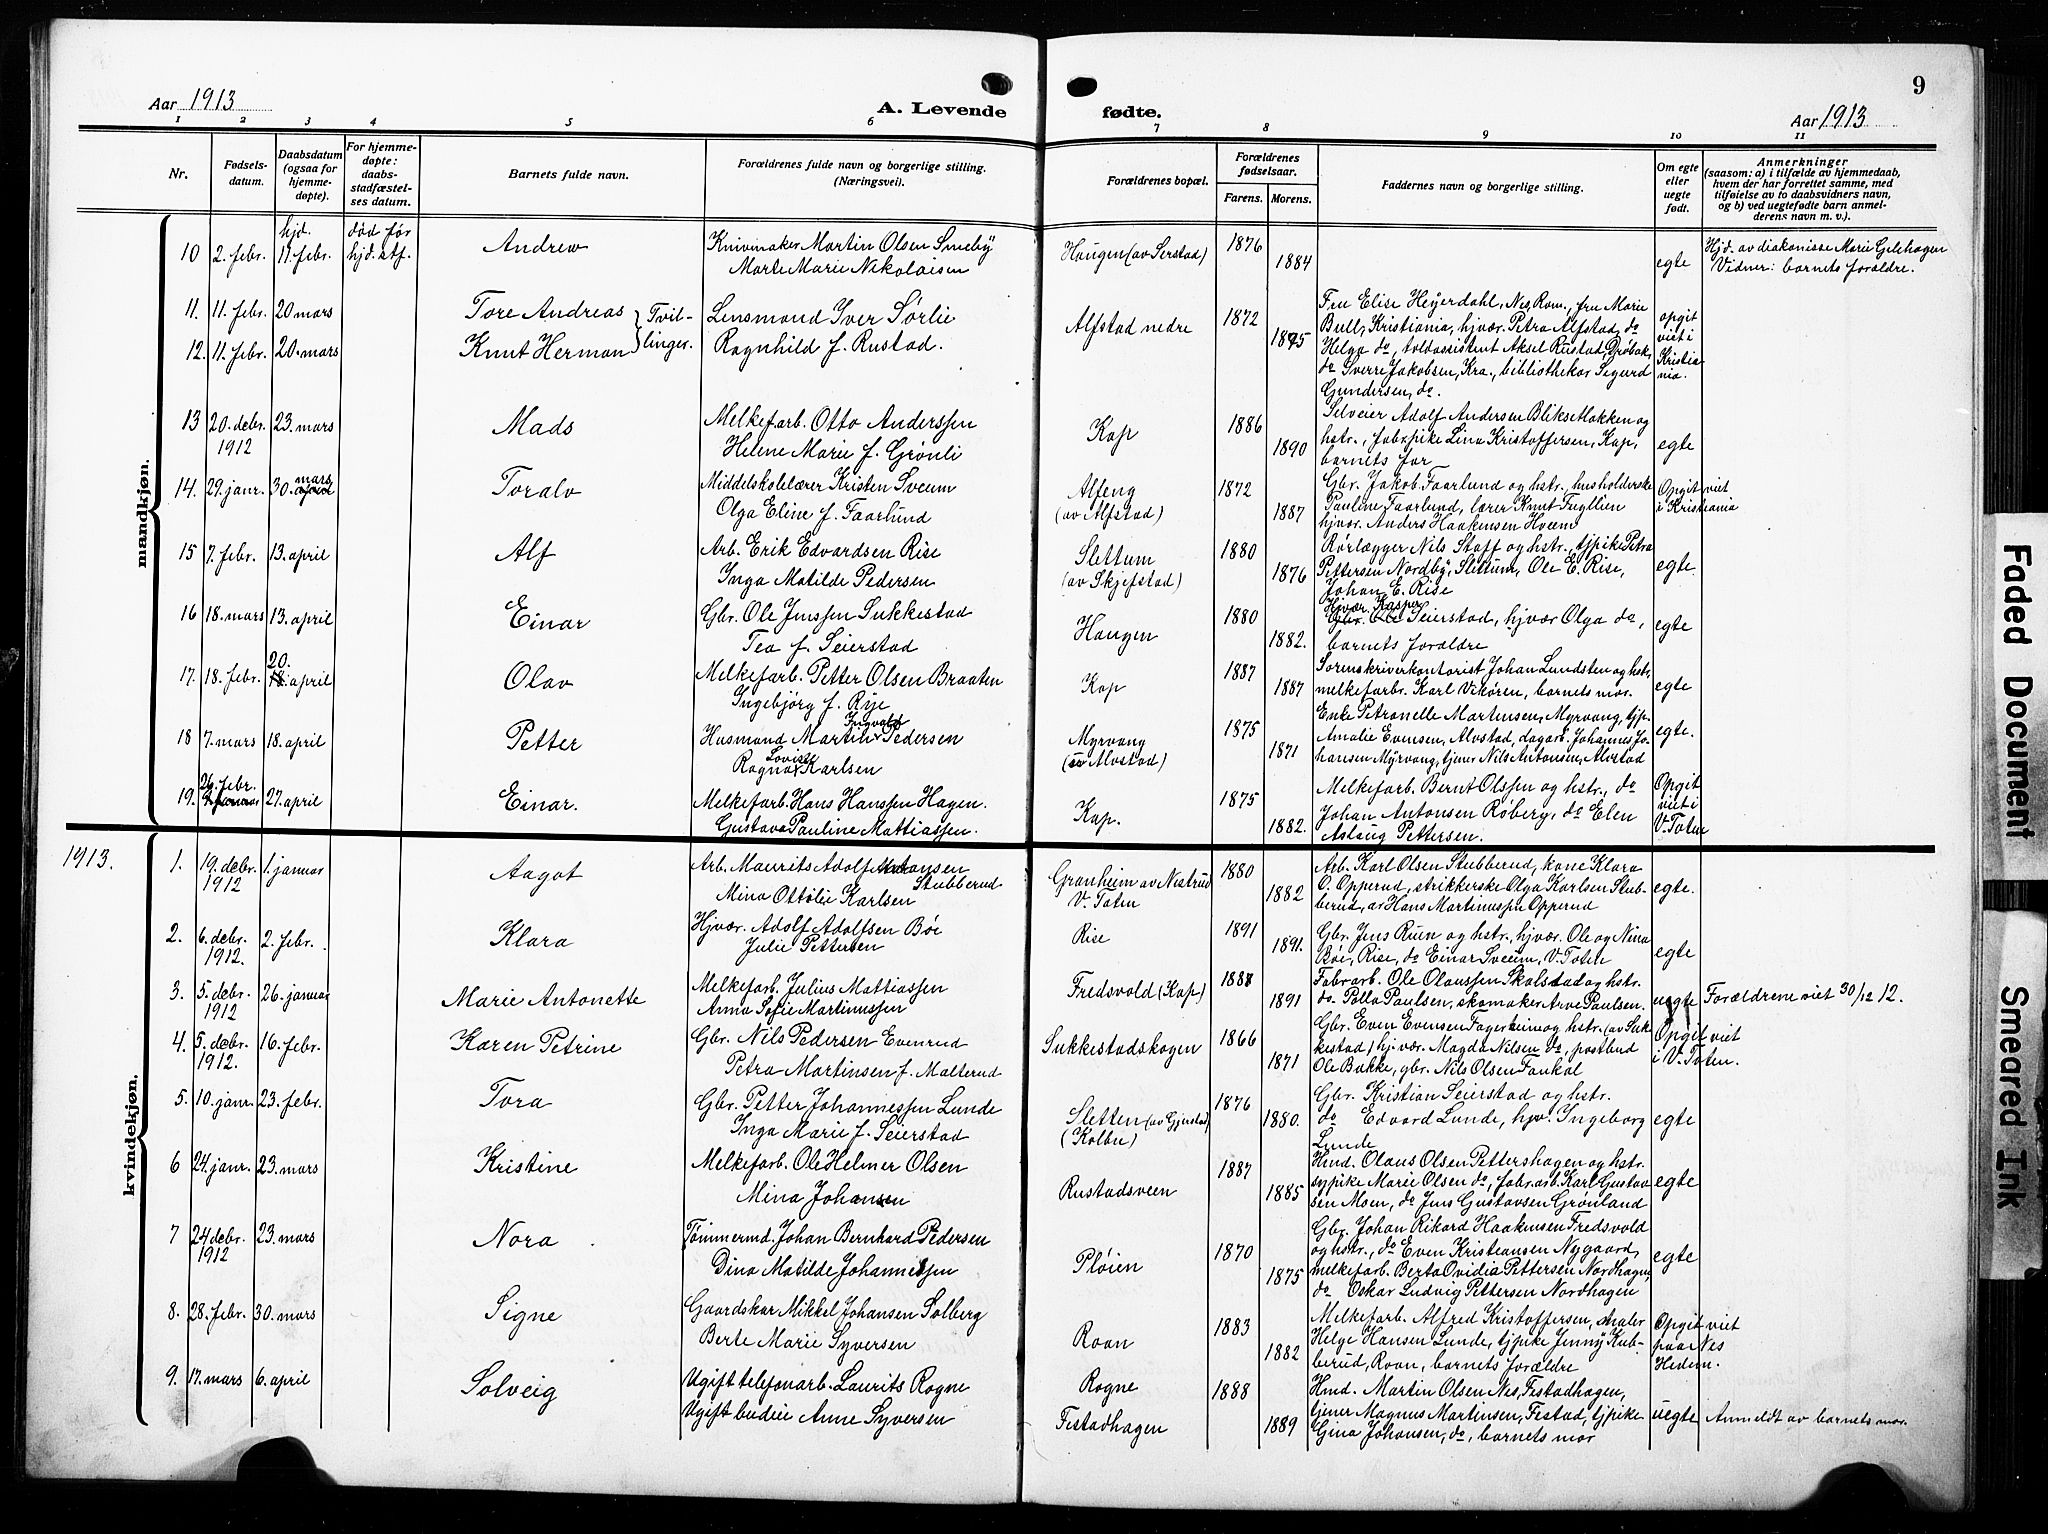 Aar 1913
A. Levende
fødte.
Aar 1913
9
1 2 3 4 5 6 7 8 9 10 11
Nr.
Fødsels-
datum.
Daabsdatum
(ogsaa for
hjemme-
døpte).
For hjemme-
døpte:
daabs-
stadfæstel-
ses datum.
Barnets fulde navn.
Forældrenes fulde navn og borgerlige stilling.
(Næringsvei).
Forældrenes bopæl.
Forældrenes
fødselsaar.
Farens. Morens.
Faddernes navn og borgerlige stilling.
Om egte
eller
uegte
født.
Anmerkninger
(saasom: a) i tilfælde av hjemmedaab,
hvem der har forrettet samme, med
tilføielse av to daabsvidners navn,
og b) ved uegtefødte barn anmel-
derens navn m. v.).
mandkjøn.
10 2. febr. hjd. 11. febr. død før hjd. stf. Andrew
Knivmaker Martin Olsen Smeby
Marte Marie Nikolaisen
Haugen (av Serstad) 1876 1884 egte
Hjd. av diakonisse Marie Gjelehagen
Vidner: barnets forældre.
11. 11. febr. 20 mars Tore Andreas
12. 11. febr. 20. mars Knut Herman
Tvil-
linger.
Lensmand Iver Sørlie
Ragnhild f. Rustad.
Alfstad nedre 1872 1875
Fru Elise Heyerdahl, Nes, Rom., fru Marie
Bull, Kristiania, hjvær. Petra Alfstad, do
Helga do, toldassistent Aksel Rustad, Drøbak,
do Sverre Jakobsen, Kra., bibliothekar Sigurd
Gundersen, do.
opgit
viet i
Kristia
nia.
13 20. debr. 1912 23. mars Mads
Melkefarb. Otto Anderssen
Helene Marie f. Grønli
Kap 1886 1890
Selveier Adolf Andersen Blikset Løkken og
hstr., fabr.pike Lina Kristoffersen, Kap,
barnets far
egte
14. 29. janr. 30. mars Toralv
Middelskolelærer Kristen Sveum
Olga Eline f. Faarlund
Alfeng
(av Alfstad)
1872 1887
Gbr. Jakob Faarlund og hstr., husholderske
Pauline Faarlund, lærer Knut Fugllien
hjvær. Anders Haakensen Hveem
Opgit viet
i Kristiania
15 7. febr. 13. april Alf
Arb. Erik Edvardsen Rise
Inga Matilde Pedersen
Slettum
(av Skjefstad)
1880 1876
Rørlægger Nils Staff og hstr., tjpike Petra
Pettersen Nordby, Slettum, Ole E. Rise,
Johan E. Rise
egte.
16 18. mars 13. april Einar
Gbr. Ole Jenssen Sukkestad
Tea f. Seierstad
Haugen 1880 1882.
Hjvær. Kasper
Gbr. Ole Seierstad, hjvær Olga do,
barnets forældre
egte
17. 18. febr. 20. april Olav
Melkefarb. Petter Olsen Braaten
Ingebjørg f. Rije
Kap 1887 1887
Sorenskriverkontorist Johan Lundsten og hstr.
melkefarbr. Karl Vikøren, barnets mor.
egte
18 7. mars 18. april Petter
Ingvald
Husmand Martin Pedersen
Lovise
Ragna Karlsen
Myrvang
(av Alvstad)
1875 1871
Enke Petronelle Martinsen, Myrvang, tjp.
Amalie Evensen, Alvstad, dagarb. Johannes Jo-
hansen Myrvang, tjener Nils Antonsen, Alvstad
egte.
19. 26. febr. 27. april Einar.
Melkefarb. Hans Hanssen Hagen.
Gustava Pauline Mattiassen.
Kap. 1875 1882.
Melkefarb. Bernt Olssen og hstr., do
Johan Antonsen Røberg, do Elen
Aslaug Pettersen.
Opgit
viet i
V. Toten
1913.
kvindekjøn.
1. 19. debr. 1912 1. januar Aagot
Arb. Maurits Adolf Johansen
Stubberud
Mina Ottilie Karlsen
Granheim av Nestrud
V. Toten
1880 1882
Arb. Karl Olsen Stubberud, kone Klara
O. Opperud, strikkerske Olga Karlsen Stub-
berud, av Hans Martinussen Opperud
egte.
2. 6. debr. 1912. 2. febr. Klara
Hjvær. Adolf Adolfsen Bøe
Julie Pettersen
Rise 1891 1891.
Gbr. Jens Ruen og hstr., hjvær. Ole og Nina
Bøe, Rise, do Einar Sveum, V. Toten
egte
3. 5. debr. 1912 26. januar Marie Antonette
Melkefarb. Julius Mattiassen
Anna Sofie Martinussen
Fredsvold (Kap) 1887 1891
Fabr.arb. Ole Olaussen Skalstad og hstr.
do. Palla Paulsen, skomaker Arve Paulsen.
uegte Forældrene viet 30/12 12.
4. 5. debr. 1912. 16. febr. Karen Petrine
Gbr. Nils Pedersen Evenrud
Petra Martinsen f. Malterud
Sukkestadskogen 1866 1871
Gbr. Even Evensen Fagerheim og hstr. (av Suk
kestad) hjvær. Magda Nilsen do, postbud
Ole Bakke, gbr. Nils Olsen Faukal
Opgit viet
i V. Toten.
5. 10. janr. 23. febr. Tora
Gbr. Petter Johannessen Lunde
Inga Marie f. Seierstad
Sletten (av Gjestad)
(Kolbu)
1876 1880.
Gbr. Kristian Seierstad og hstr.
do Edvard Lunde, hjv. Ingeborg
Lunde
egte
6 24. janr. 23. mars Kristine
Melkefarb. Ole Helmer Olsen
Mina Johansen
Rustadsveen 1887 1885
Hmd. Olaus Olsen Pettershagen og hstr.
sypike Marie Olsen do, fabr.arb. Karl Gustav
sen Moen, do Jens Gustavsen Grønland
egte
7 24 debr. 1912 23. mars Nora
Tømmermd. Johan Bernhard Pedersen
Dina Matilde Johannessen
Pløien 1870 1875
Gbr. Johan Rikard Haakensen Fredsvold
og hstr., do Even Kristiansen Nygaard,
melkefarb. Berta Ovidia Pettersen Nordhagen,
do Oskar Ludvig Pettersen Nordhagen
egte
8. 28. febr. 30. mars Signe
Gaardskar Mikkel Johansen Solberg
Berte Marie Syversen
Raan 1883 1882
Melkefarb. Alfred Kristoffersen, maler
Helge Hansen Lunde, tjpike Jenny Kub-
berud, Raan, barnets forældre
Opgit viet
paa Nes
Hedem.
9. 17. mars 6. april Solveig
Ugift telefonarb. Laurits Rogne
Ugift budeie Anne Syversen
Rogne
Festadhagen
1888 1889
Hmd. Martin Olsen Nes, Festadhagen,
tjener Magnus Martinsen, Festad, tjpike
Gina Johansen, do, barnets mor
uegte Anmeldt av barnets mor.
Faded Document
Smeared Ink